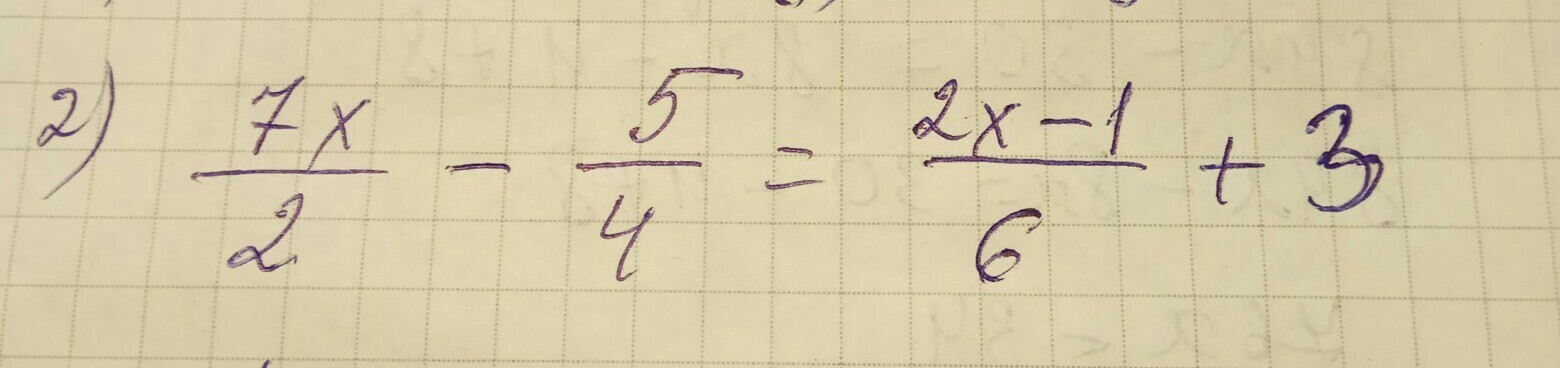 2) 7x/2 - 5/4 = (2x-1)/6 + 3